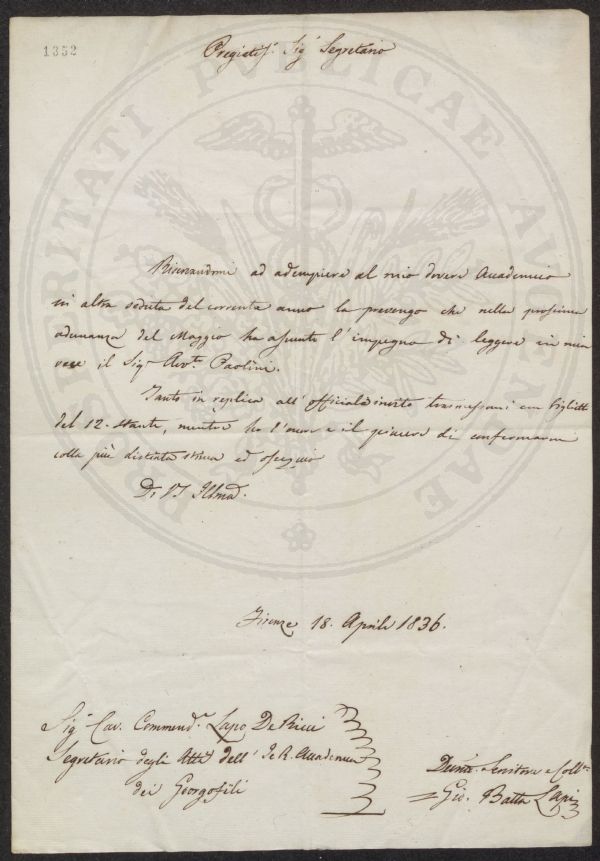 1352
Pregiatis.º Sigʳ Segretario
Riserbandomi ad adempiere al mio dovere Accademico
in altra seduta del corrente anno la prevengo che nella prossima
adunanza del Maggio ha assunto l'impegno di leggere in mia
vece il Sigʳ Avvᵗᵒ Paolini.
Tanto in replica all'officiale invito trasmessomi con biglietto
del 12. stante, mentre ho l'onore e il piacere di confermarmi
colla più distinta stima ed ossequio
Di VS Illmᵃ.
Firenze 18. Aprile 1836.
Sigʳ Cav. Commendʳ Lapo De Ricci
Segretario degli Atti dell' I e R. Accademia
dei Georgofili
Devmo Servitore e Collᵃ
Gio. Batta Lapi
PROSPERITATI PVBLICAE AVGENDAE